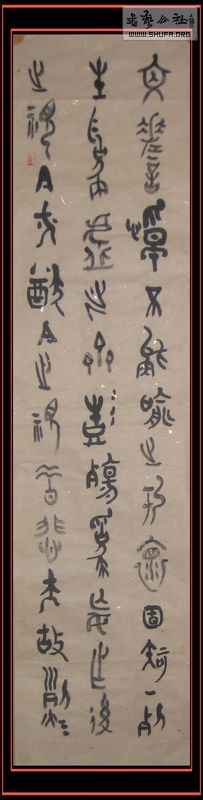 書藝公社
WWW.SHUFA.ORG
文嗟悼不能喻之於懷固知一死
生為虛誕齊彭殤為妄作後
之視今亦猶今之視昔悲夫故列